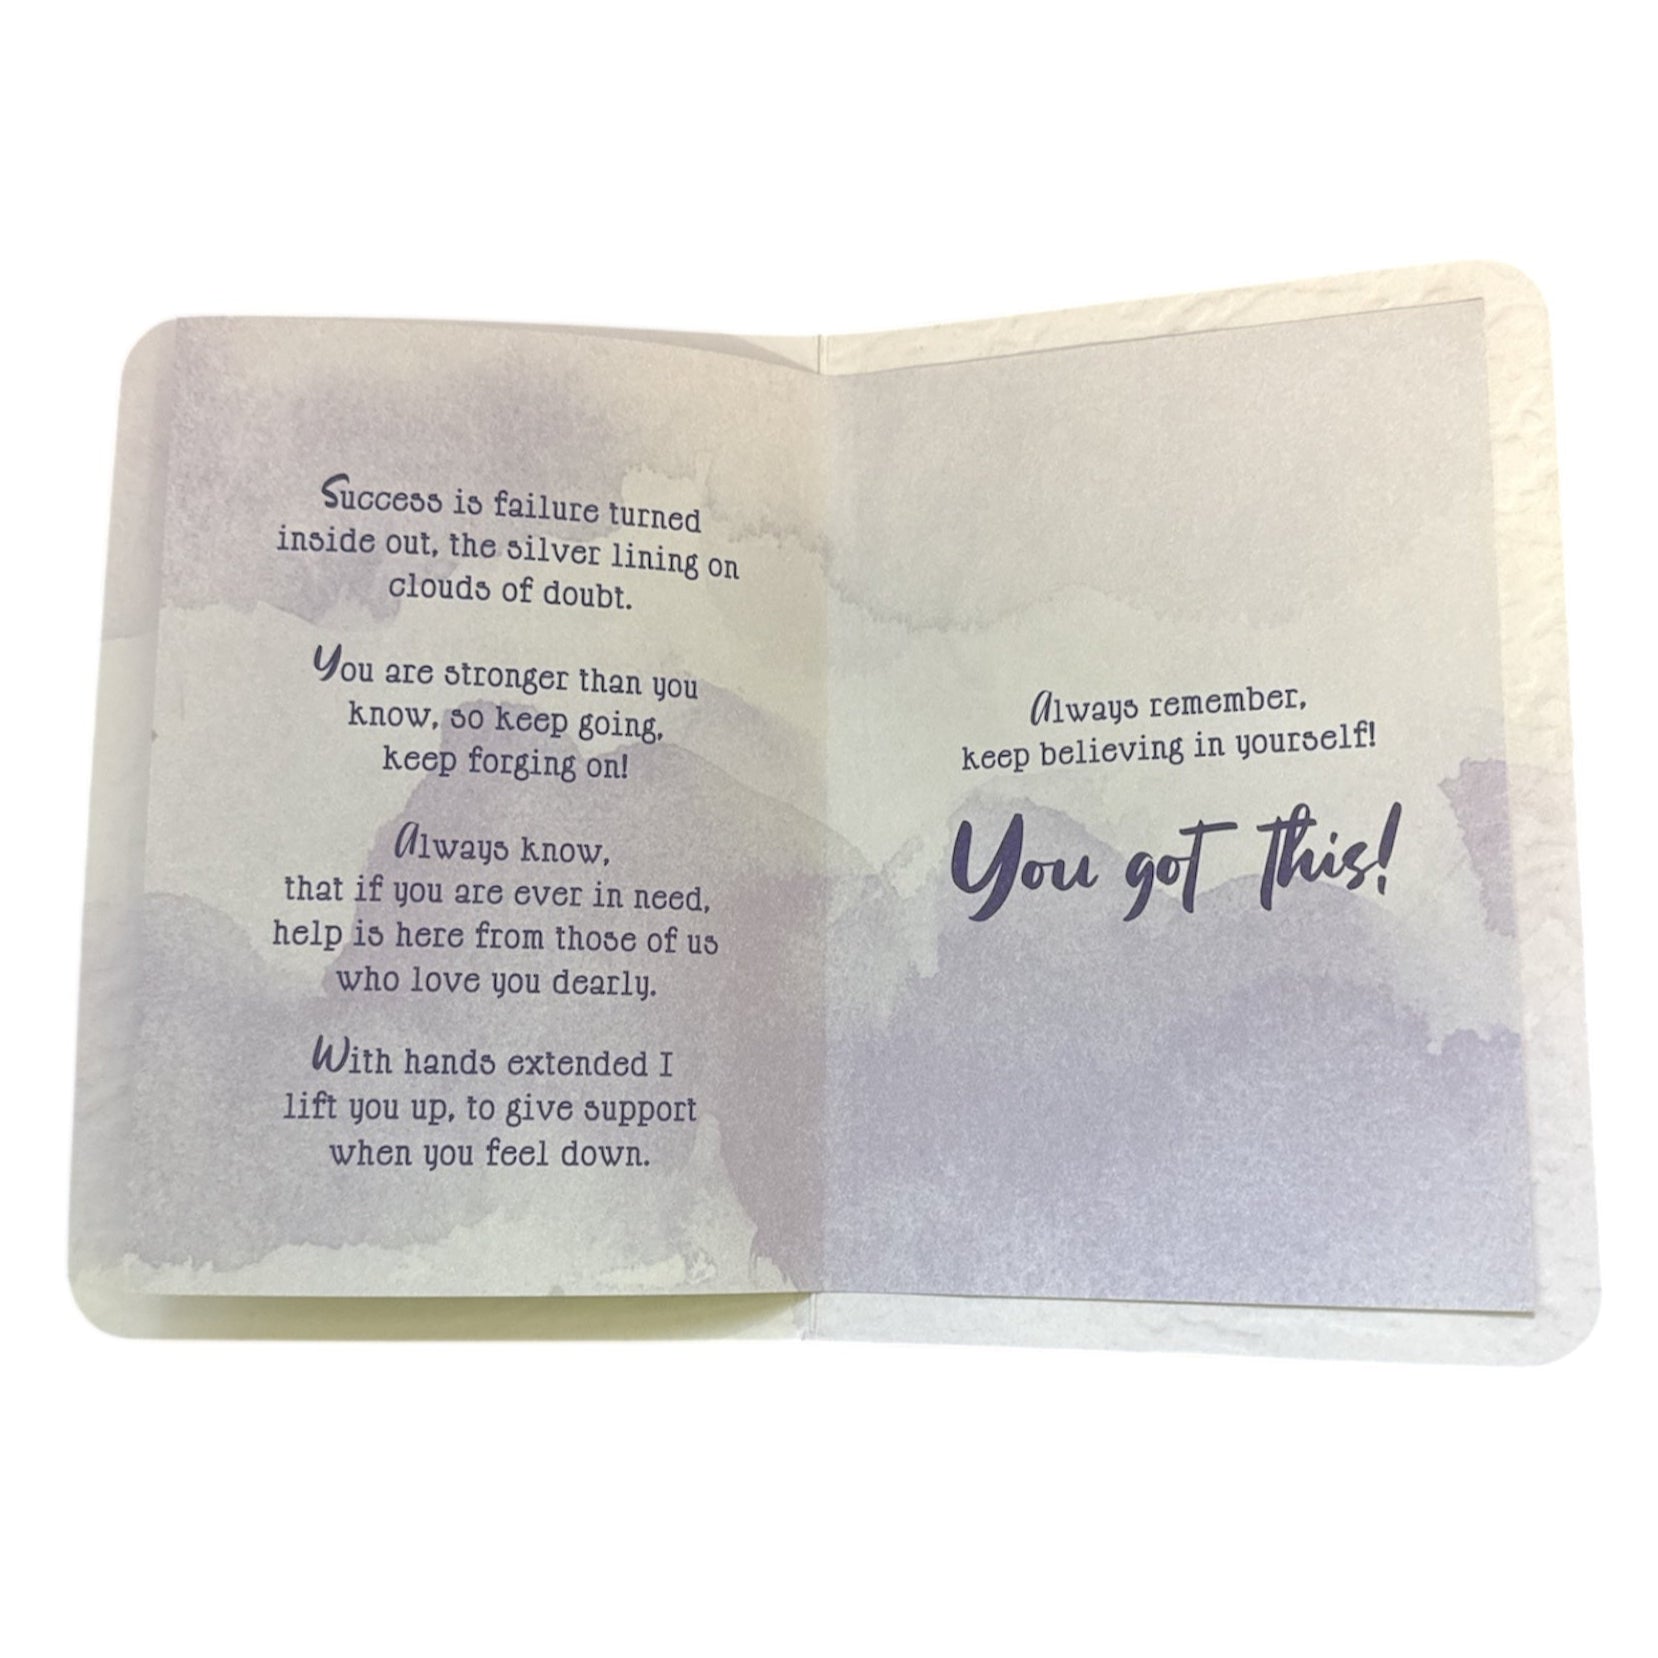 Success is failure turned
inside out, the silver lining on
clouds of doubt.
You are stronger than you
know, so keep going,
keep forging on!
Always know,
that if you are ever in need,
help is here from those of us
who love you dearly.
With hands extended I
lift you up, to give support
when you feel down.
Always remember,
keep believing in yourself!
You got this!